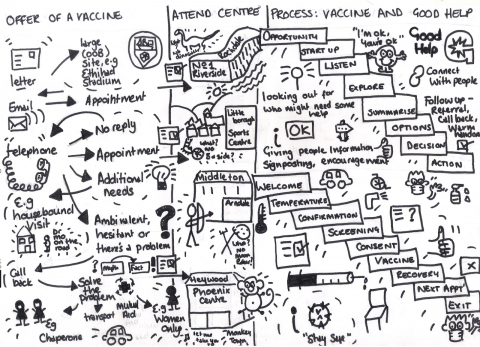 OFFER OF A VACCINE
letter
large
(OOB)
Site, e.g
Etihad
Stadium
Email
Appointment
telephone
No reply
Appointment
Additional
needs
E.g
housebound
visit
Dr
on the
road
Ambivalent,
hesitant or
there's a
problem
Call
back
myth
Fact
Solve
the
problem
Eg
Chaperone
transport
Mutual
Aid
E.g
Women
Only
ATTEND CENTRE
Rochdale
No 1
Riverside
Little
borough
Sports
Centre
what?
no
5-a-side?
Middleton
Arndale
what?
no
Heywood
Phoenix
Centre
let me
take you
Monkey
Town
PROCESS: VACCINE AND GOOD HELP
OPPORTUNITY
START UP
LISTEN
EXPLORE
SUMMARISE
OPTIONS
DECISION
ACTION
"I'm OK,
You're OK
Good
Help
Connect
With people
looking out for
who might need some
help
OK
Giving people Information
Signposting, encouragement
Follow up -
Referral,
Call back,
Warm
WELCOME
TEMPERATURE
CONFIRMATION
SCREENING
CONSENT
VACCINE
RECOVERY
NEXT APPT
EXIT
?
"Stay Safe"